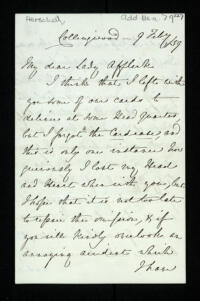 Herschel
Collingwood 9 Feby /59
My dear Lady Affleck
I think that I left with
you some of our cards to
deliver at some Head Quarters
but I forgot the
this is only one instance how
I lost my Head
and Heart when with you, but
I hope that it is not too late
to repair this omission, & if
you will kindly overlook an
annoying accident which
I have